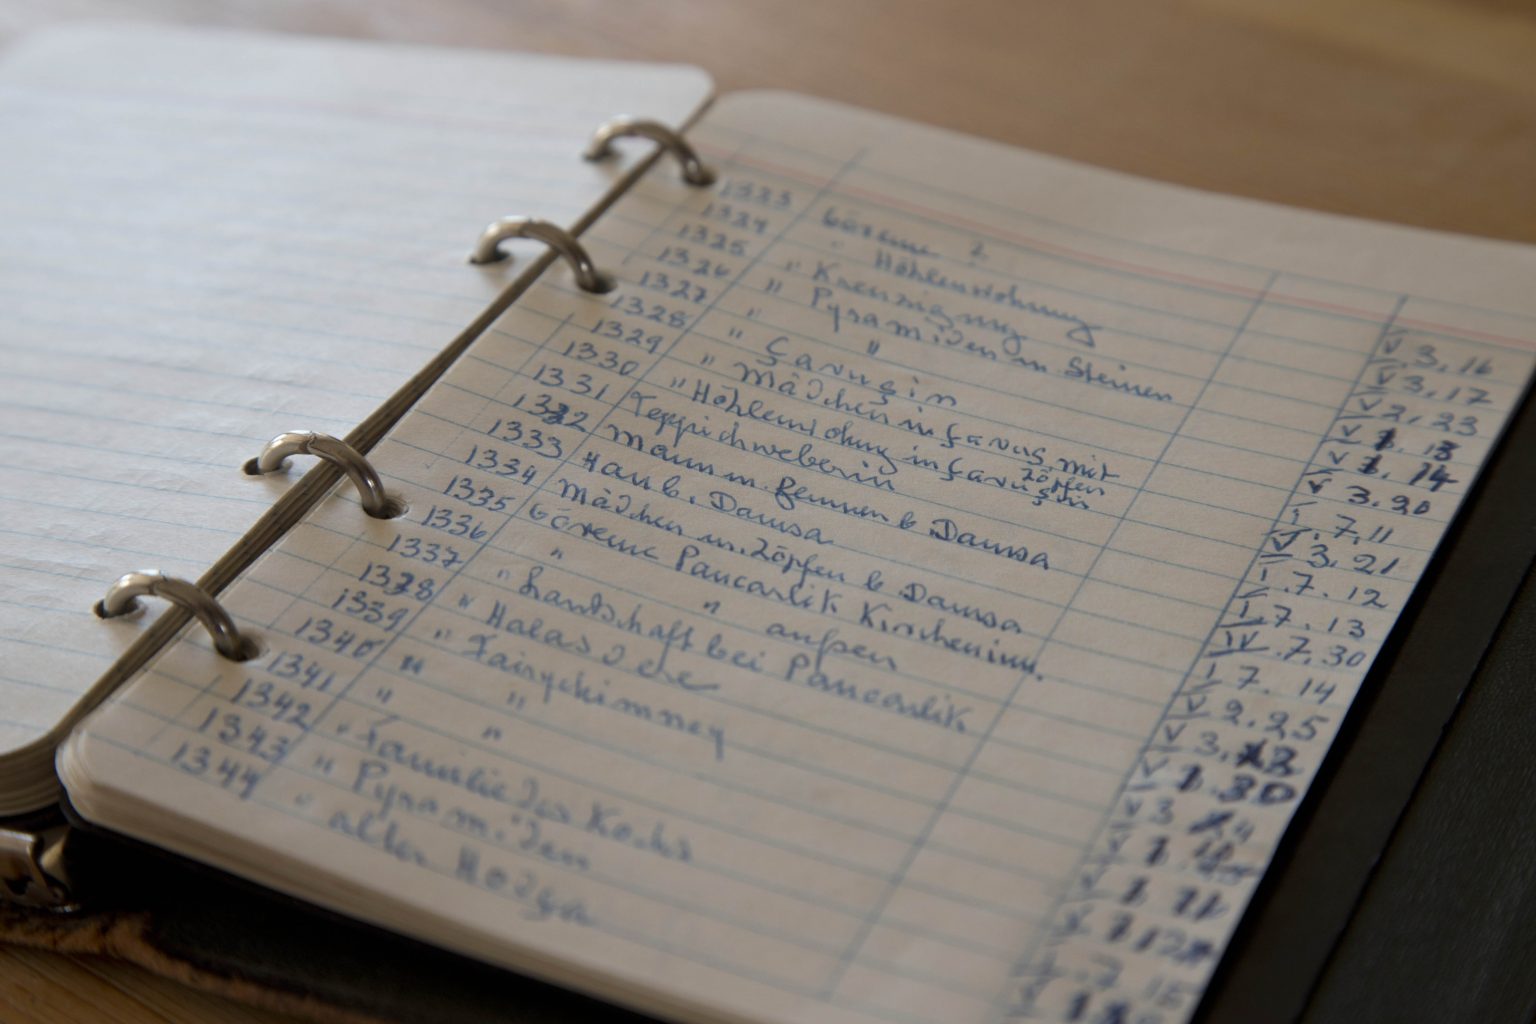 1323 Göreme 2 V 3. 16
1324 " Höhlenwohnung V 3. 17
1325 " Kreuzigung V 2. 23
1326 " Pyramiden m Steinen V 1. 13
1327 " " V 1. 14
1328 " Çavuşin V 3. 20
1329 " Mädchen in Çavuş mit Zöpfen I. 7. 11
1330 " Höhlenwohnung in Çavuşin V 3. 21
1331 Teppichweberin I. 7. 12
1332 Mann m. Rennen b Damsa I. 7. 13
1333 Han b. Damsa IV. 7. 30
1334 Mädchen m. Zöpfen b Damsa I 7. 14
1335 Göreme Pancarlik Kircheninn. V 2. 25
1336 " " außen V 3.
1337 " Landschaft bei Pancarlik V 30
1338 " Halasdere V 3
1339 " Fairychimney
1340 " "
1341 " "
1342 " Familie des Kochs
1343 " Pyramiden
1344 " alter Hodga